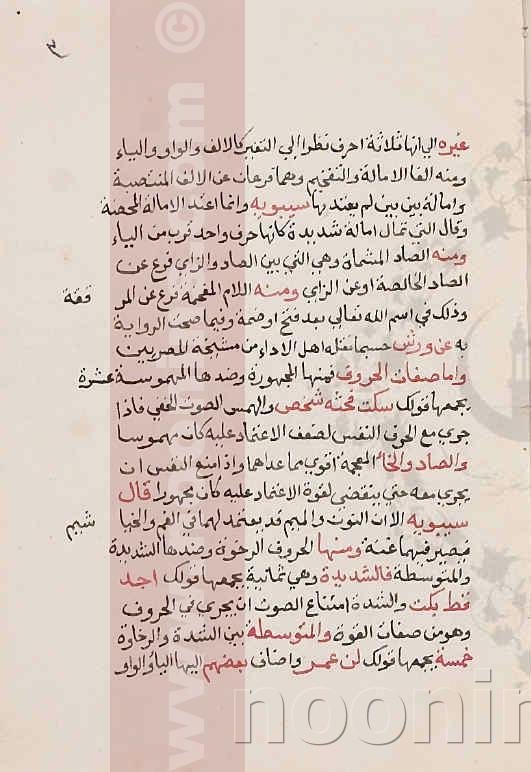 غيره الي انها ثلاثة احرف نظرا الي التغير كالالف والواو والياء
ومنه الفا الامالة والتفخيم وهما فرعان عن الالف المنتصبة
وامالة بين بين لم يعتد بها سيبويه وانما اعتد الامالة المحضة
وقال التي تمال امالة شديدة كانها حرف واحد قرب من الياء
ومنه الصاد المشمة وهي التي بين الصاد والزاي فرع عن
الصاد الخالصة او عن الزاي ومنه اللام المفخمة فرع عن المر
ققة
وذلك في اسم الله تعالي بعد فتح او ضمة وفيما صحت الرواية
به عن ورش حسبما نقله اهل الاداء من مشيخة المصريين
واما صفات الحروف فمنها المجهورة وضدها المهموسة عشرة
يجمعها قولك سكت فحثه شخص والهمس الصوت الخفي فاذا
جري مع الحرف النفس لضعف الاعتماد عليه كان مهموسا
والصاد والخاء المعجمة اقوي مما عداهما واذا منع النفس ان
يجري معه حتي ينقضي لقوة الاعتماد عليه كان مجهورا قال
سيبويه الا ان النون والميم قد يعتمد لهما في الفم والخيا
شيم
فيصير فيهما غنة ومنها الحروف الرخوة وضدها الشديدة
والمتوسطة فالشديدة وهي ثمانية يجمعها قولك اجد
قط بكت والشدة امتناع الصوت ان يجري في الحروف
وهو من صفات القوة والمتوسطة بين الشدة والرخاوة
خمسة يجمعها قولك لن عمر واضاف بعضهم اليها الياء والواو
noonin